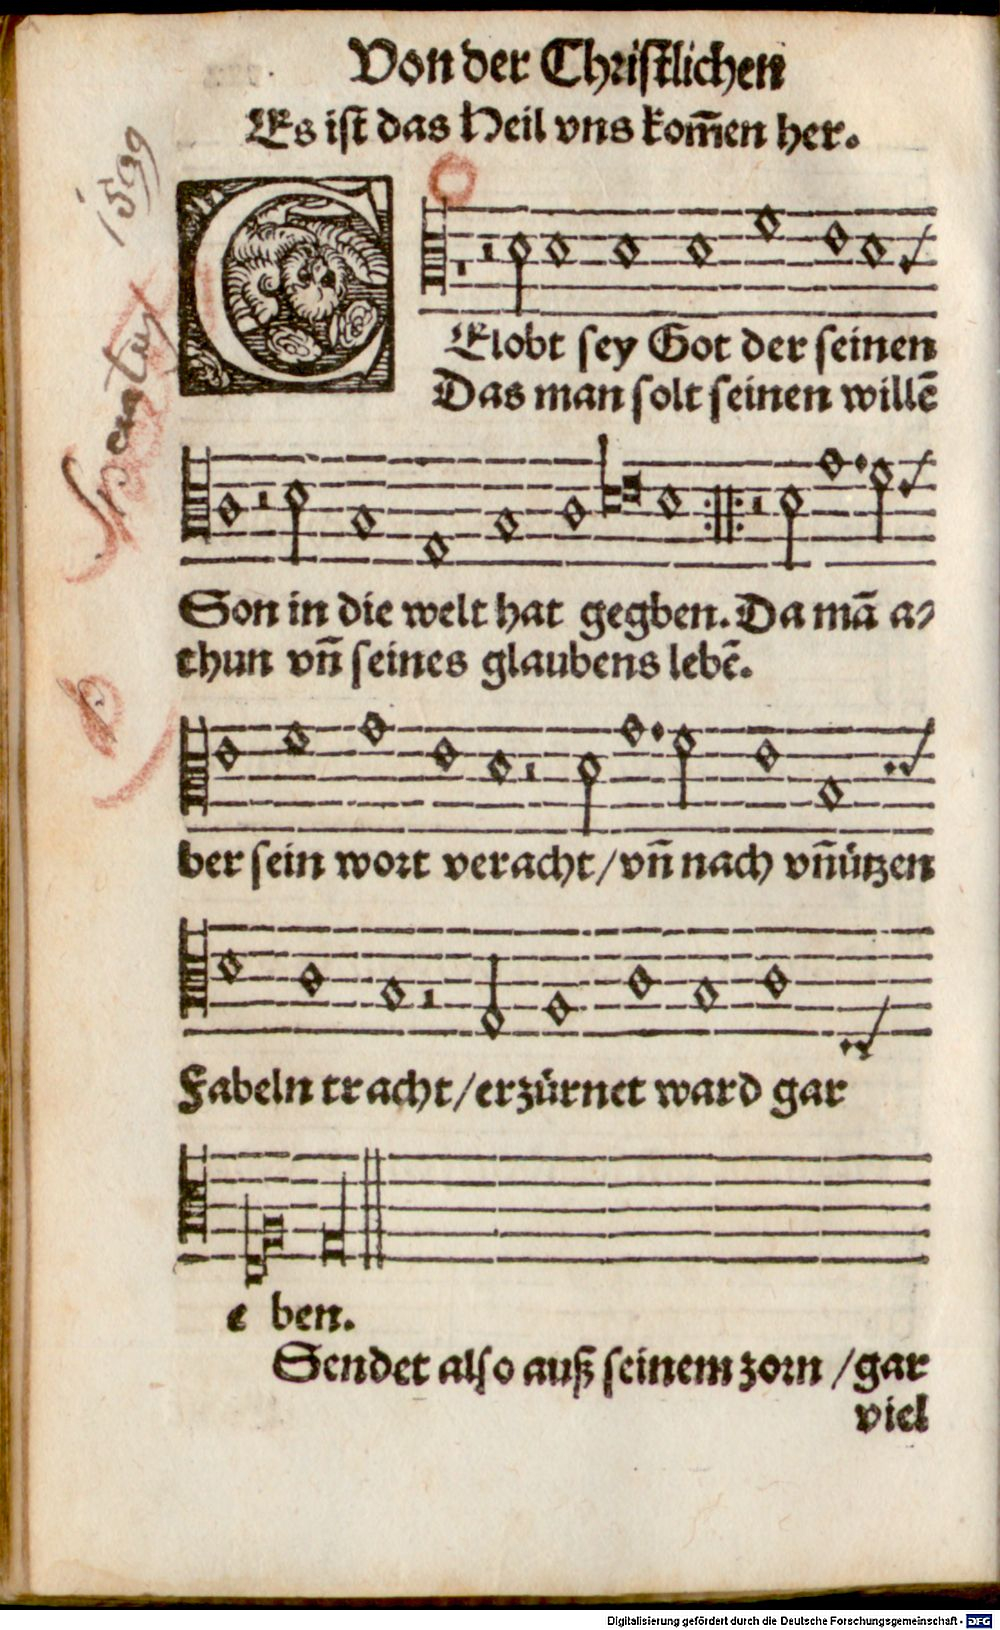 Von der Christlichen
Es ist das Heil vns kom̄en her.
G
Elobt sey Got der seinen
Das man solt seinen willē
Son in die welt hat gegben. Da mā a⸗
thun vn̄ seines glaubens lebē.
ber sein wort veracht/vn̄ nach vn̄ützen
Fabeln tracht/erzürnet ward gar
e ben.
Sendet also auß seinem zorn /gar
viel
1599
Digitalisierung gefördert durch die Deutsche Forschungsgemeinschaft - DFG